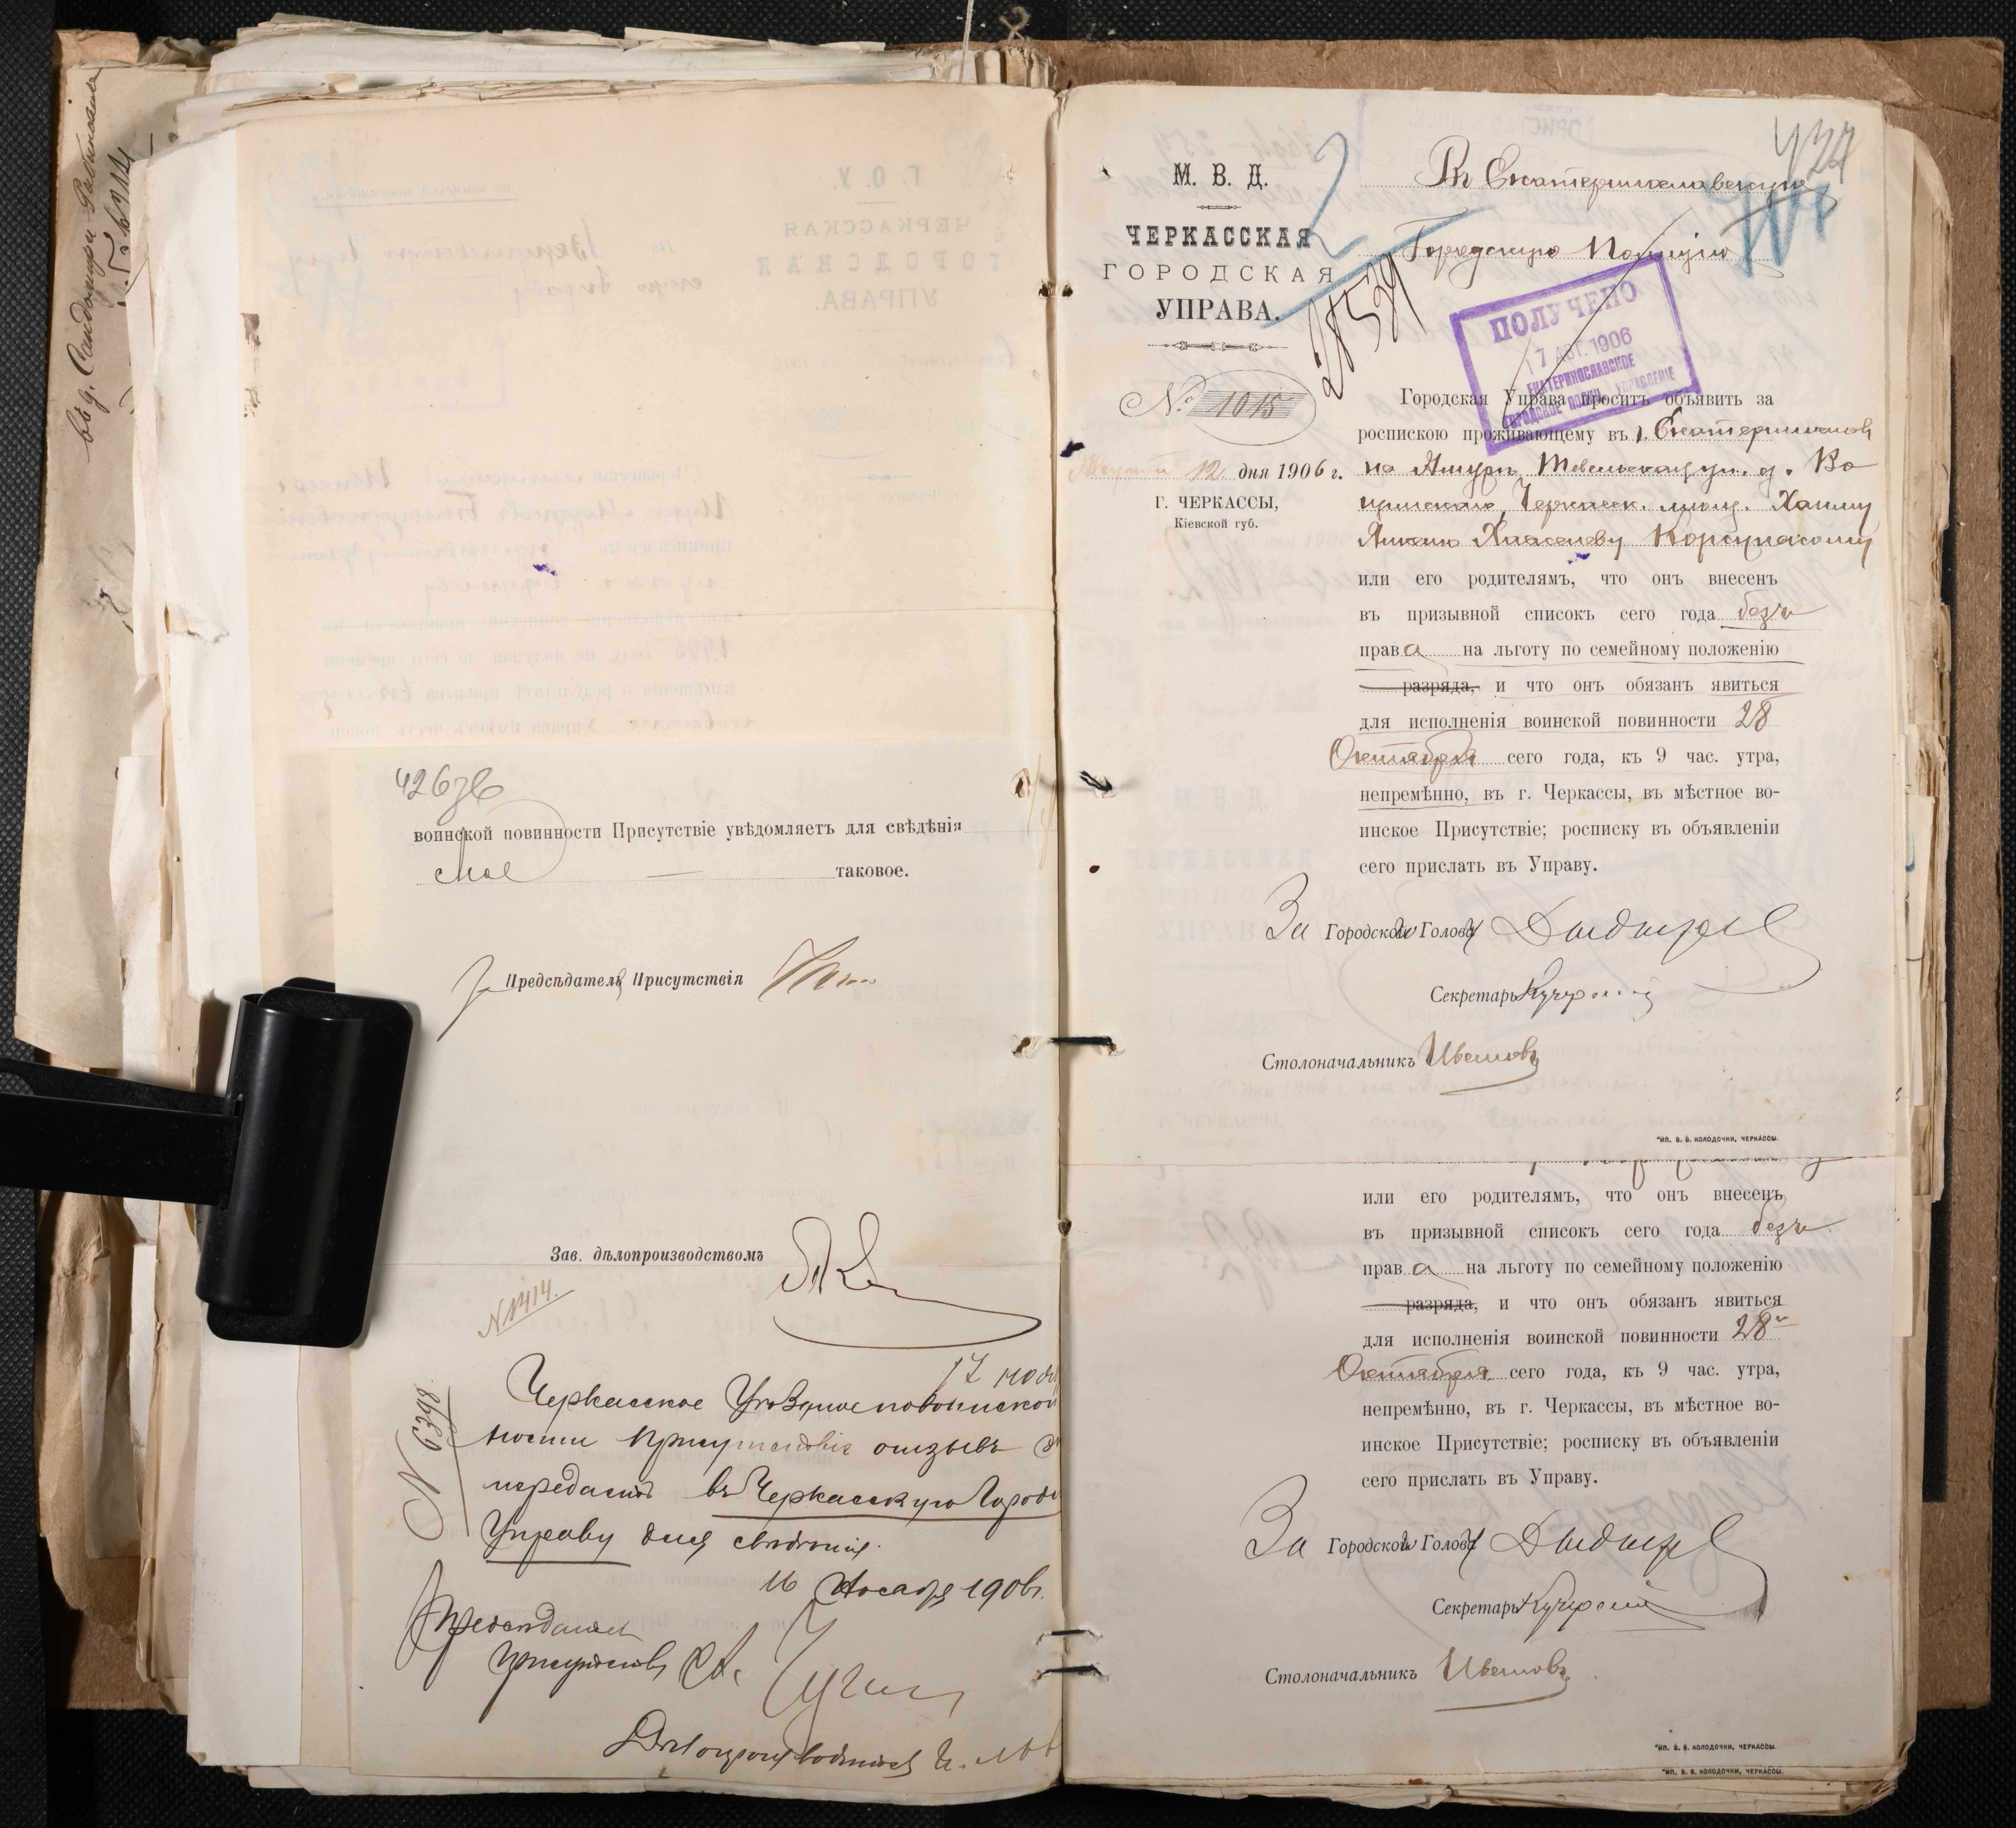 въ д. Сандомира Рабиновича
426 зв
воинской повинности Присутствіе увѣдомляетъ для свѣдѣнія
таковое.
Предсѣдатель Присутствія
Зав. дѣлопроизводствомъ
N 1414.
17 нояб
N 6398
Черкасское Уѣздное по воинской
ности Присутствіе отзывъ
передаетъ въ Черкасскую Городс
Управу для свѣдѣнія.
16 Ноября 1906 г.
Предсѣдатель
Присутствія
Дѣлопроизводитель
М. В. Д.
ЧЕРКАССКАЯ
ГОРОДСКАЯ
УПРАВА.
№ 1015
Августа 12 дня 1906 г.
Г. ЧЕРКАССЫ,
Кіевской губ.
2
427
Въ Екатеринославскую
Городскую Полицію
28579
ПОЛУЧЕНО
17 АВГ. 1906
ЕКАТЕРИНОСЛАВСКОЕ
ГОРОДСКОЕ ПОЛИЦ. УПРАВЛЕНІЕ
Городская Управа проситъ объявить за
роспискою проживающему въ г. Екатеринослав
на Амурѣ, ул. д.
Черкасск. мѣщ. Хаиму
Корсунскому
или его родителямъ, что онъ внесенъ
въ призывной списокъ сего года безъ
права на льготу по семейному положенію
разряда, и что онъ обязанъ явиться
для исполненія воинской повинности 28
Октября сего года, къ 9 час. утра,
непремѣнно, въ г. Черкассы, въ мѣстное во-
инское Присутствіе; росписку въ объявленіи
сего прислать въ Управу.
За Городского Голову
Секретарь
Столоначальникъ
Тип. В. В. КОЛОДОЧКИ, ЧЕРКАССЫ.
или его родителямъ, что онъ внесенъ
въ призывной списокъ сего года безъ
права на льготу по семейному положенію
разряда, и что онъ обязанъ явиться
для исполненія воинской повинности 28го
Октября сего года, къ 9 час. утра,
непремѣнно, въ г. Черкассы, въ мѣстное во-
инское Присутствіе; росписку въ объявленіи
сего прислать въ Управу.
За Городского Голову
Секретарь
Столоначальникъ
Тип. В. В. КОЛОДОЧКИ, ЧЕРКАССЫ.
Тип. В. В. КОЛОДОЧКИ, ЧЕРКАССЫ.